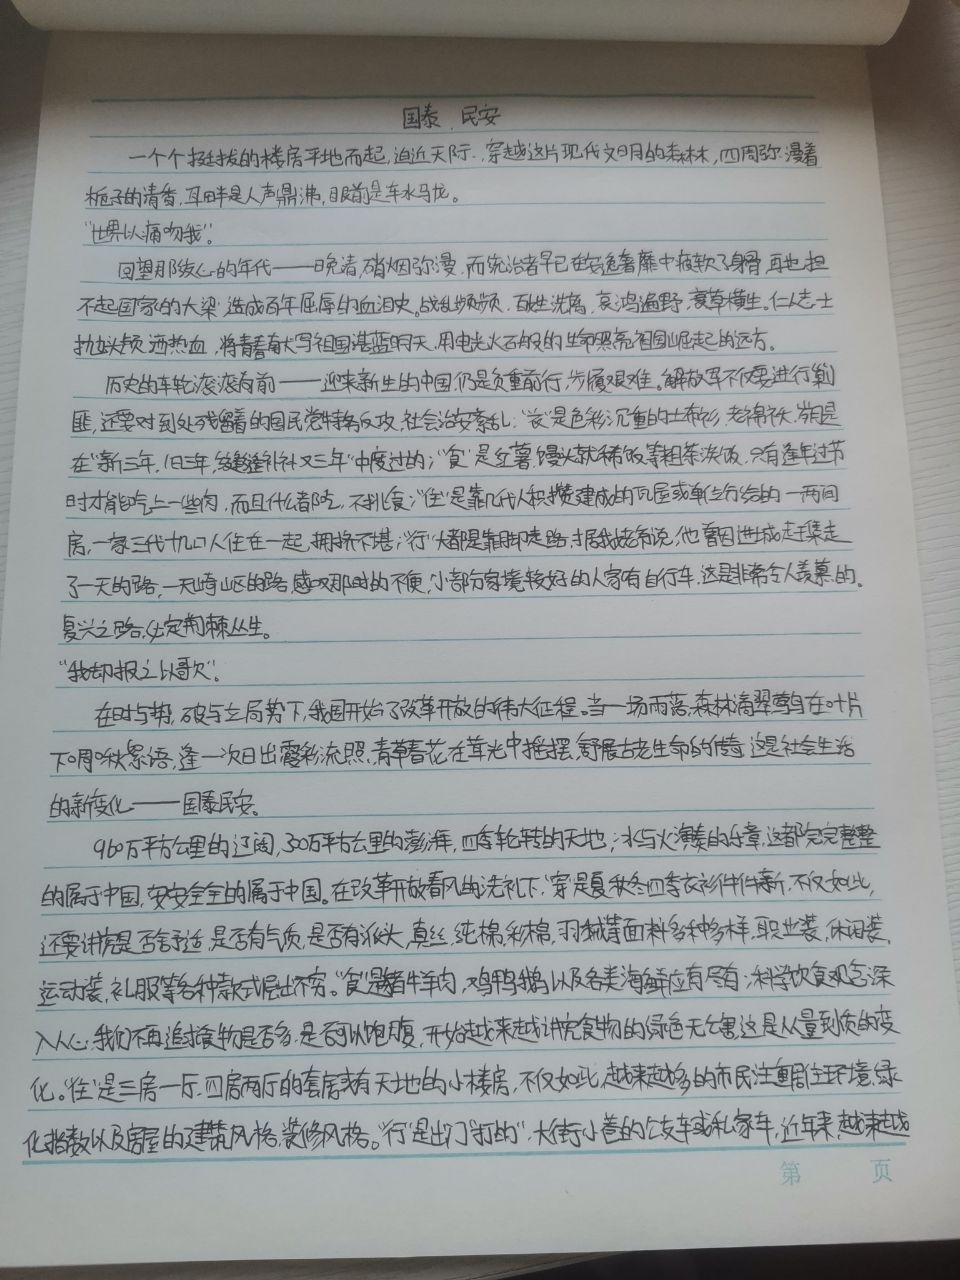 国泰、民安
一个个挺拔的楼房平地而起,迫近天际,穿越这片现代文明的森林,四周弥漫着
栀子的清香,耳畔是人声鼎沸,眼前是车水马龙。
"世界以痛吻我"。
回望那绞心的年代——晚清,硝烟弥漫,而统治者早已在安逸奢靡中疲软了身骨,再也担
不起国家的大梁,造成百年屈辱的血泪史。战乱频频,百姓流离,哀鸿遍野,衰草横生。仁人志士
抛头颅洒热血,将青春奋力大写祖国湛蓝明天,用电光火石般的生命照亮祖国崛起的远方。
历史的车轮滚滚向前——迎来新生的中国仍是负重前行,步履艰难。解放军不仅要进行剿
匪,还要对到处残留着的国民党特务反攻,社会治安紊乱;"衣"是色彩沉重的土布衫,老棉袄,岁月是
在"新三年,旧三年,缝缝补补又三年"中度过的;"食"是红薯,馒头就稀饭等粗茶淡饭,只有逢年过节
时才能吃上一些肉,而且什么都吃,不挑食;"住"是靠几代人积攒建成的瓦屋或单位分给的一两间
房,一家三代十几口人住在一起,拥挤不堪;"行"大都是靠脚走路,据我姥爷说,他曾因进城赶集走
了一天的路,一天崎岖的路,感叹那时的不便,小部分家境较好的人家有自行车,这是非常令人羡慕的。
复兴之路,必定荆棘丛生。
"我却报之以歌"。
在时与势,破与立局势下,我国开始了改革开放的伟大征程。当一场雨落,森林滴翠莺鸟在叶片
下啁啾絮语,逢一次日出霞彩流照,青草春花在茸光中摇摆,舒展古老生命的传奇,这是社会生活
的新变化——国泰民安。
960万平方公里的辽阔,300万平方公里的澎湃,四季轮转的天地,冰与火演奏的乐章,这都完完整整
的属于中国,安安全全的属于中国。在改革开放春风的洗礼下,"穿"是夏秋冬四季衣衫件件新,不仅如此,
还要讲究是否舒适,是否有气质,是否有派头,真丝,纯棉,彩棉,羽绒等面料多种多样,职业装,休闲装,
运动装,礼服等各种款式层出不穷。"食"是猪牛羊肉,鸡鸭鹅以及各类海鲜应有尽有;科学饮食观念深
入人心,我们不再追求食物是否多,是否可以饱腹,开始越来越讲究食物的绿色无公害,这是从量到质的变
化。"住"是三房一厅,四房两厅的套房或有天地的小楼房,不仅如此,越来越多的市民注重居住环境,绿
化指数以及房屋的建筑风格,装修风格。"行"是出门"打的",大街小巷的公交车或私家车,近年来,越来越
第 页